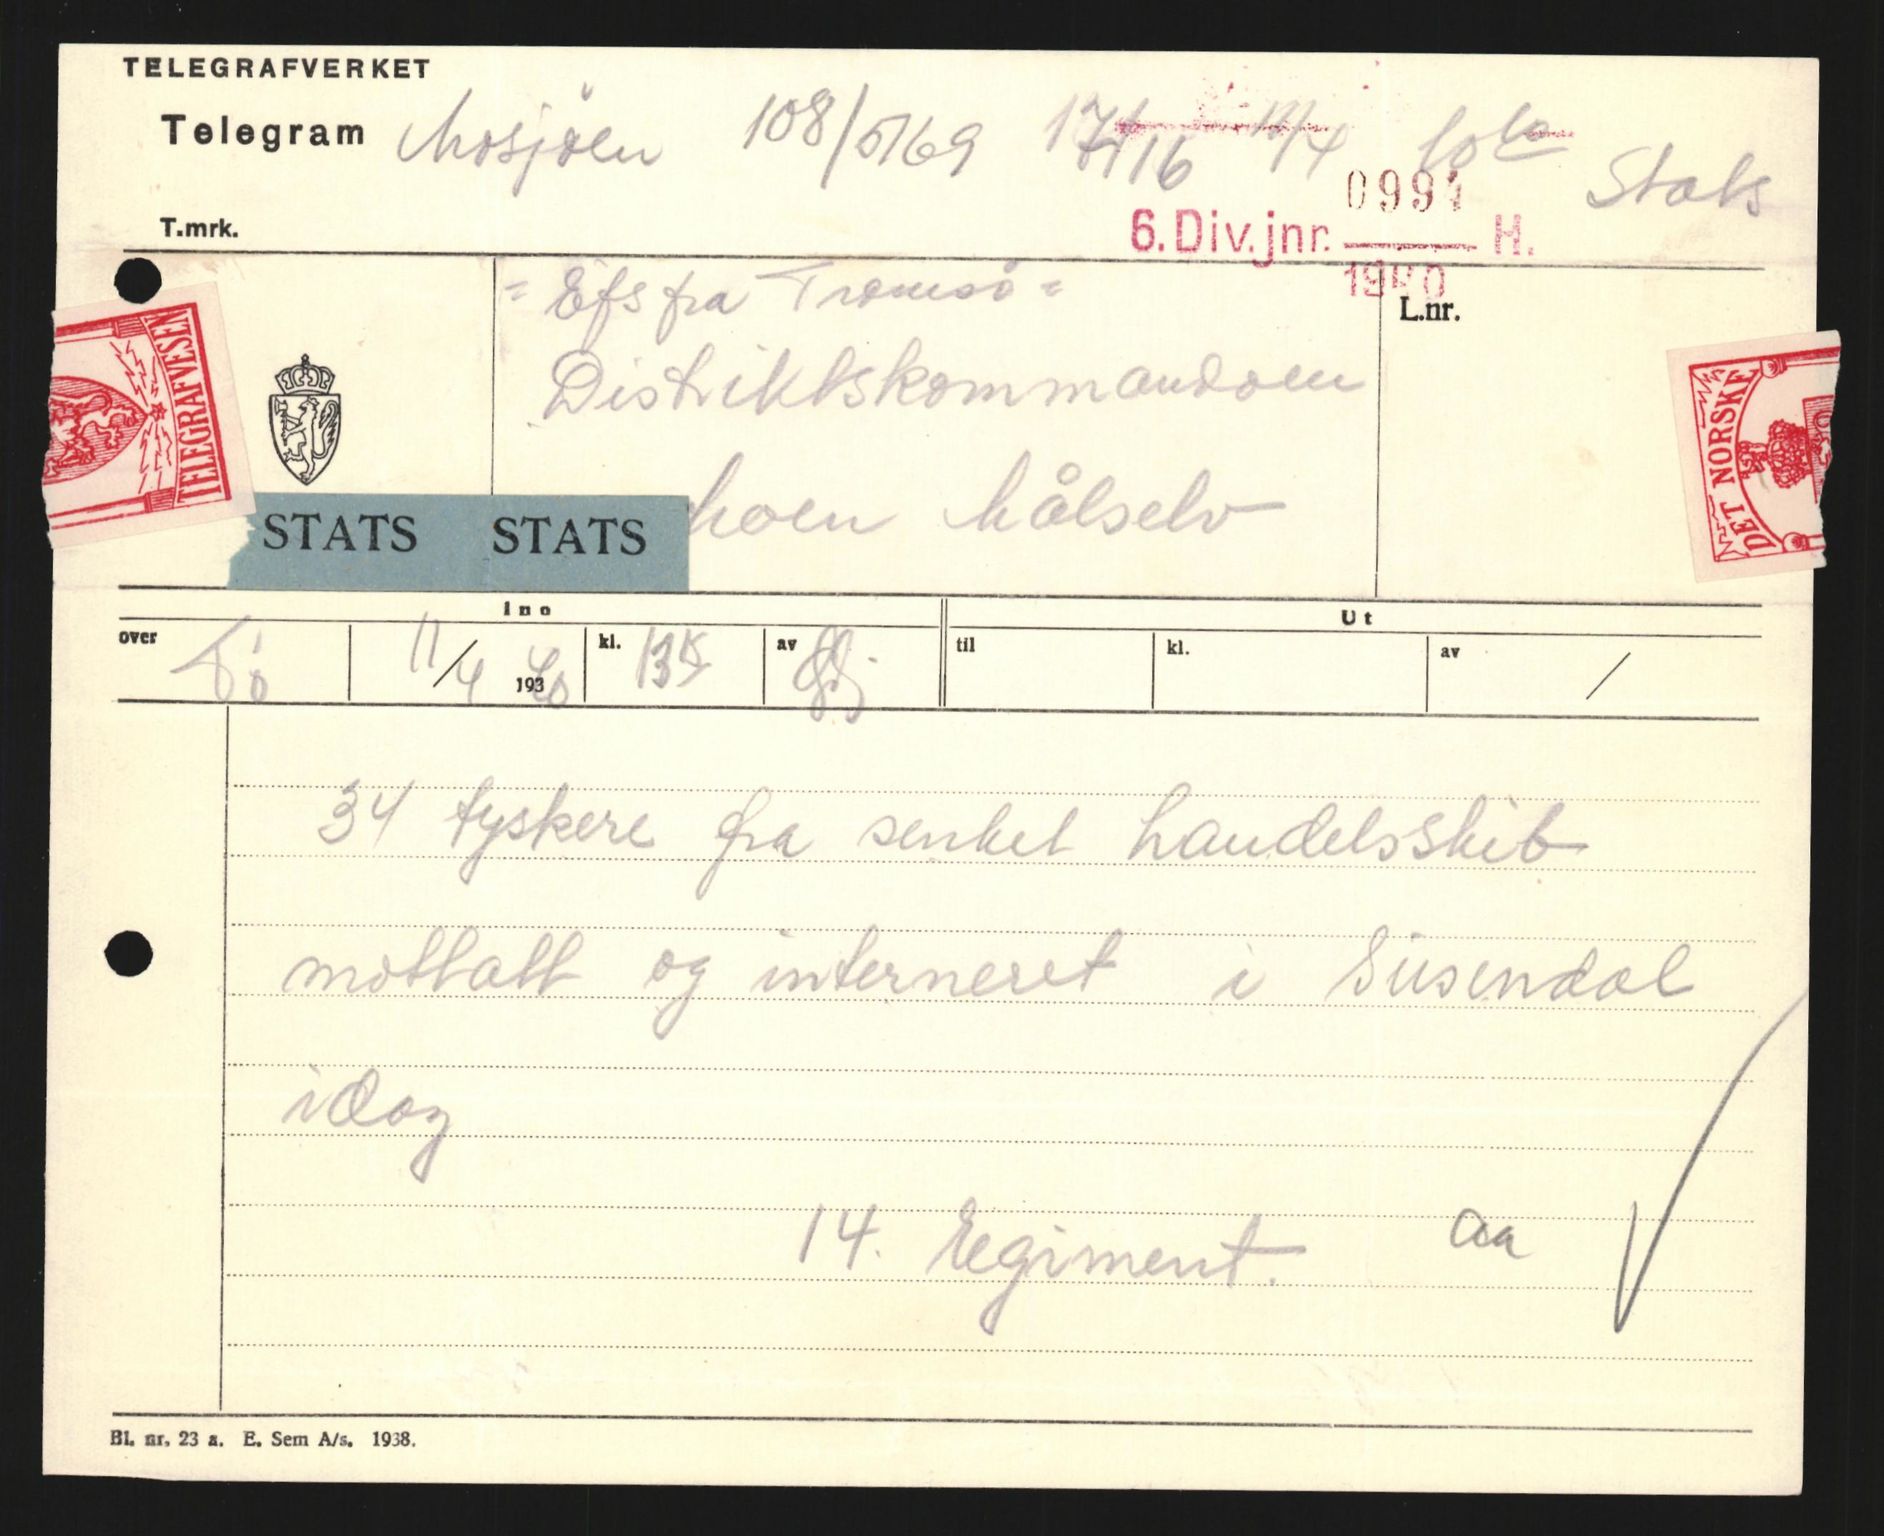 TELEGRAFVERKET
Telegram Mosjöen 108/5169 17/16 11/4 Stats
0994
T.mrk.
6.Div.jnr. H.
1940
= Efs fra Tromsö =
L.nr.
Distriktskommandoen
Moen Målselv
TELEGRAFVESEN
DET NORSKE
STATS STATS
Inn Ut
over Tö 11/4 1940 kl. 135 av til kl. av /
34 tyskere fra senket handelsskib
mottatt og interneret i Susendal
idag
14. Regiment. aa
Bl. nr. 23 a. E. Sem A/s. 1938.